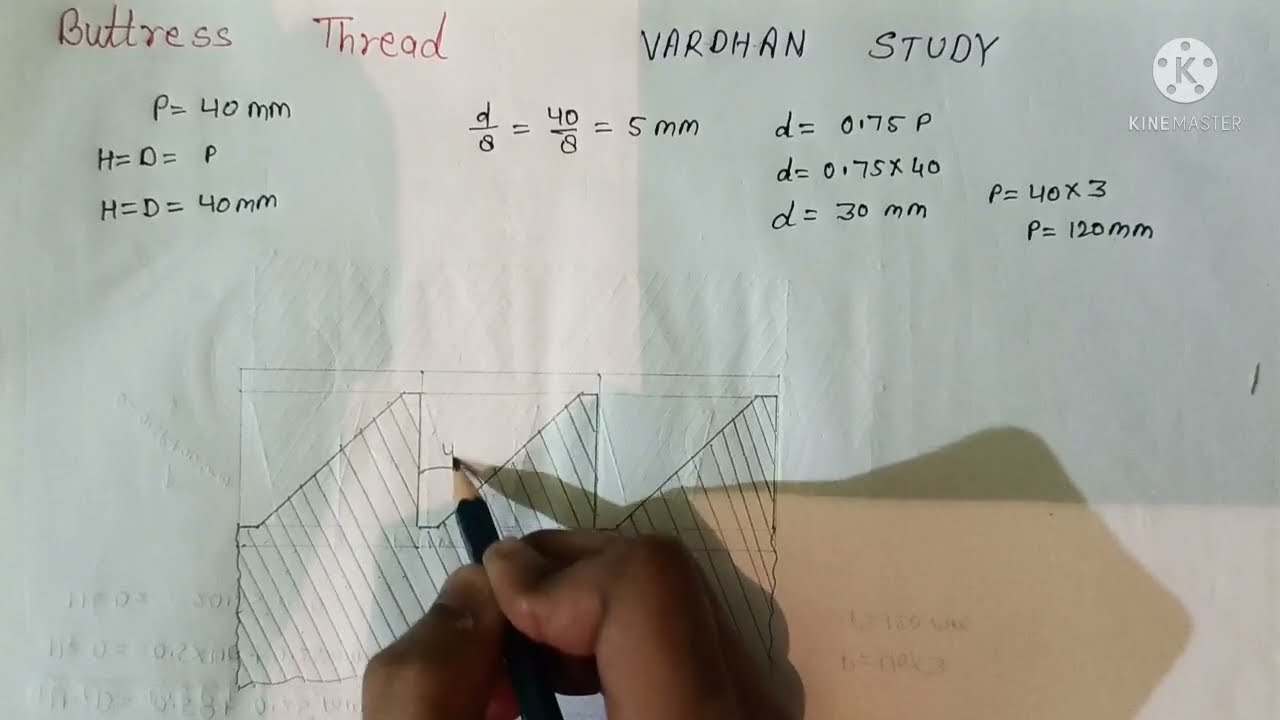 Buttress Thread VARDHAN STUDY
KINEMASTER
P= 40 mm
H= D= P
H= D= 40 mm
d/8 = 40/8 = 5 mm
d= 0.75 P
d= 0.75 x 40
d = 30 mm
P= 40 x 3
P= 120 mm
4